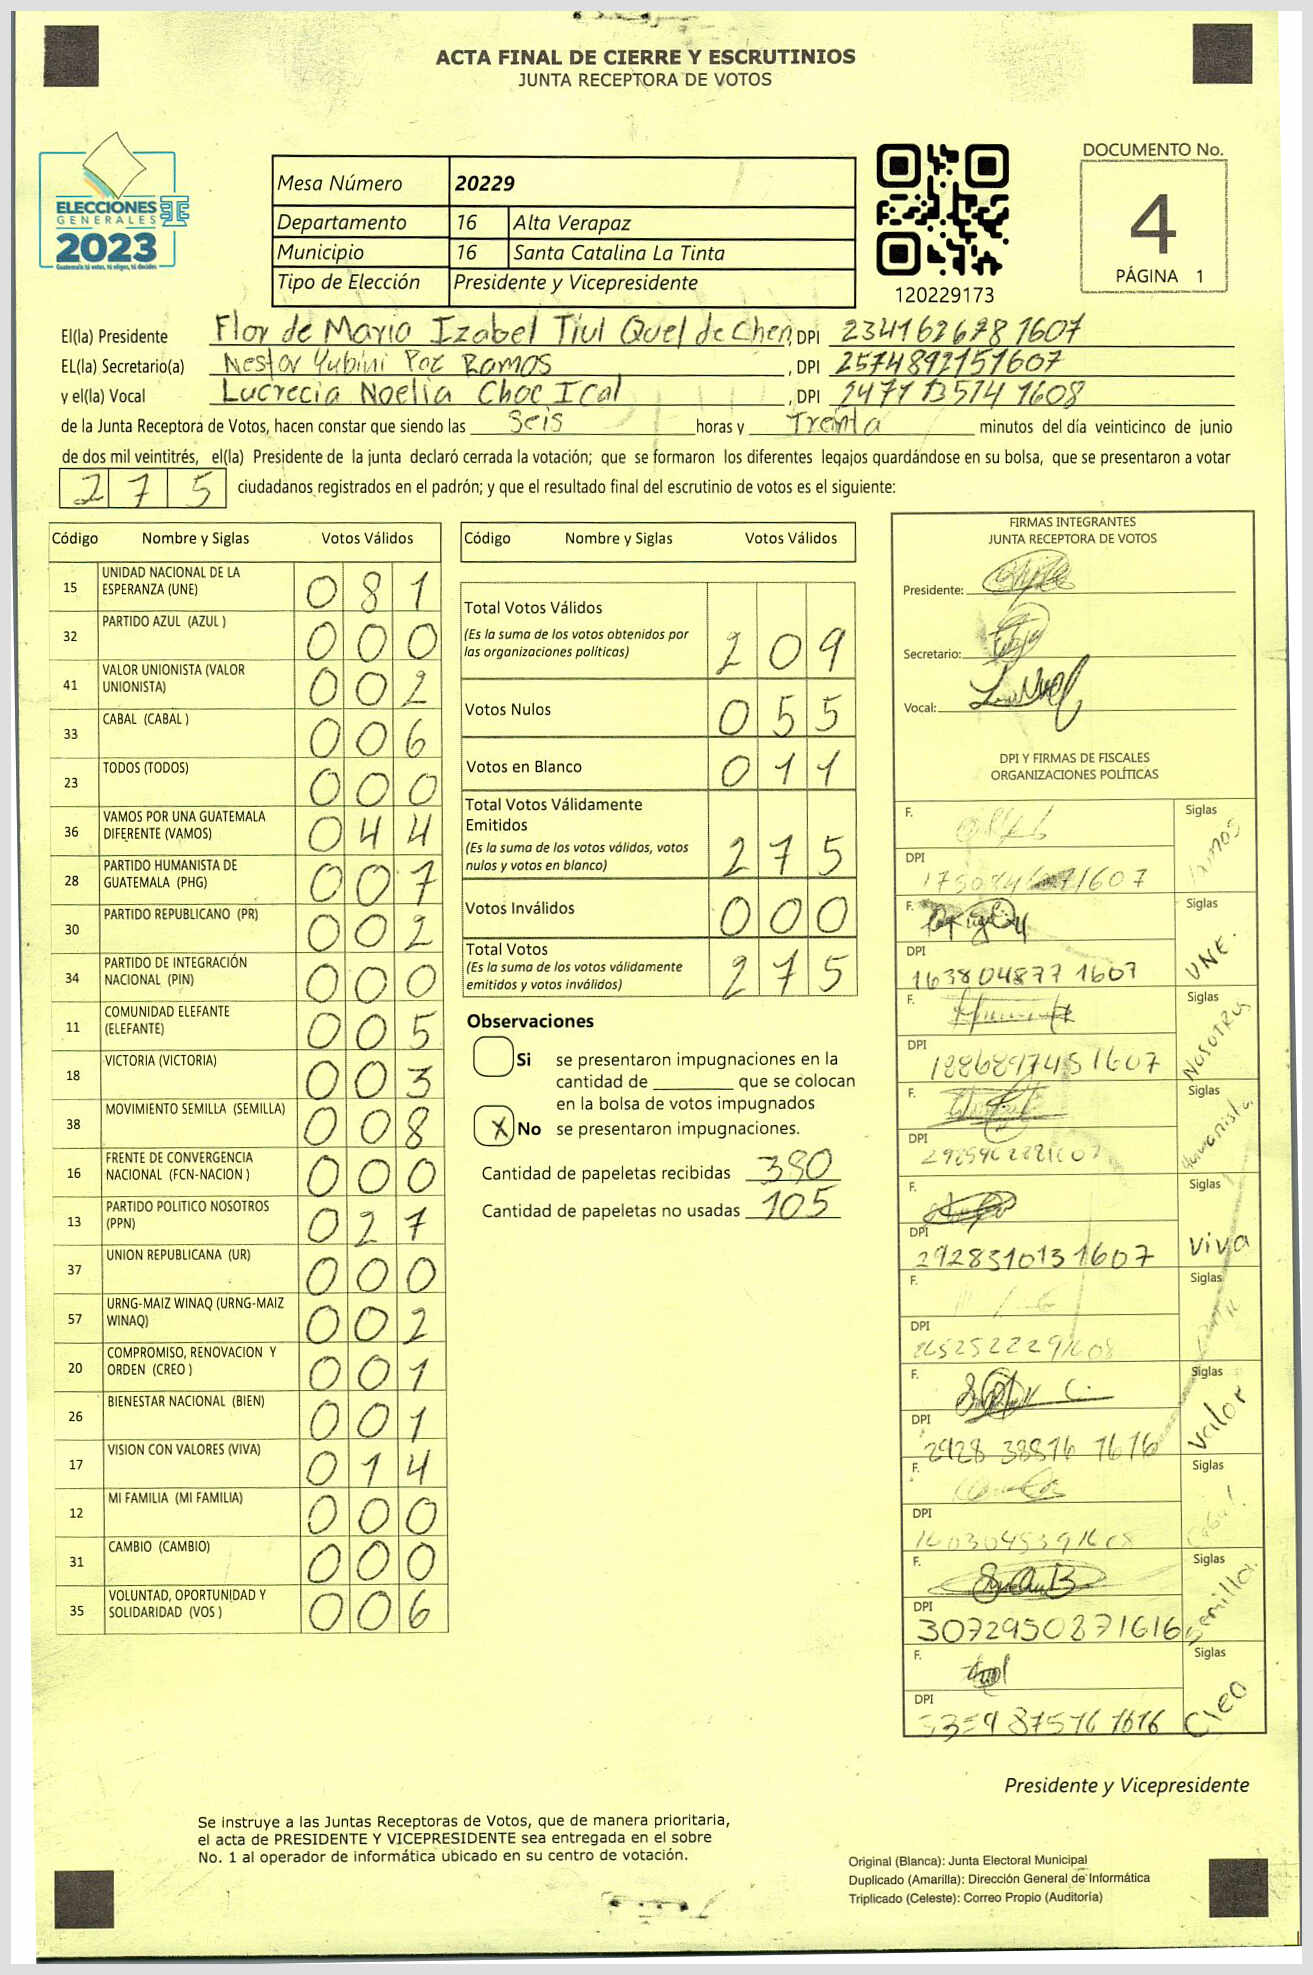 ACTA FINAL DE CIERRE Y ESCRUTINIOS
JUNTA RECEPTORA DE VOTOS
ELECCIONES
GENERALES
2023
Guatemala tú votas, tú eliges, tú decides
Mesa Número 20229
Departamento 16 Alta Verapaz
Municipio 16 Santa Catalina La Tinta
Tipo de Elección Presidente y Vicepresidente
120229173
DOCUMENTO No.
4
PÁGINA 1
El(la) Presidente Flor de Maria Izabel Tiul Quel de Chen, DPI 2341626781607
EL(la) Secretario(a) Nestor Yubini Poz Ramos, DPI 2574892151607
y el(la) Vocal Lucrecia Noelia Choc Ical, DPI 2471135141608
de la Junta Receptora de Votos, hacen constar que siendo las Seis horas y Treinta minutos del día veinticinco de junio
de dos mil veintitrés, el(la) Presidente de la junta declaró cerrada la votación; que se formaron los diferentes legajos guardándose en su bolsa, que se presentaron a votar
275 ciudadanos registrados en el padrón; y que el resultado final del escrutinio de votos es el siguiente:
Código Nombre y Siglas Votos Válidos
15 UNIDAD NACIONAL DE LA ESPERANZA (UNE) 081
32 PARTIDO AZUL (AZUL ) 000
41 VALOR UNIONISTA (VALOR UNIONISTA) 002
33 CABAL (CABAL ) 006
23 TODOS (TODOS) 000
36 VAMOS POR UNA GUATEMALA DIFERENTE (VAMOS) 044
28 PARTIDO HUMANISTA DE GUATEMALA (PHG) 007
30 PARTIDO REPUBLICANO (PR) 002
34 PARTIDO DE INTEGRACIÓN NACIONAL (PIN) 000
11 COMUNIDAD ELEFANTE (ELEFANTE) 005
18 VICTORIA (VICTORIA) 003
38 MOVIMIENTO SEMILLA (SEMILLA) 008
16 FRENTE DE CONVERGENCIA NACIONAL (FCN-NACION ) 000
13 PARTIDO POLITICO NOSOTROS (PPN) 027
37 UNION REPUBLICANA (UR) 000
57 URNG-MAIZ WINAQ (URNG-MAIZ WINAQ) 002
20 COMPROMISO, RENOVACION Y ORDEN (CREO ) 001
26 BIENESTAR NACIONAL (BIEN) 001
17 VISION CON VALORES (VIVA) 014
12 MI FAMILIA (MI FAMILIA) 000
31 CAMBIO (CAMBIO) 000
35 VOLUNTAD, OPORTUNIDAD Y SOLIDARIDAD (VOS ) 006
Código Nombre y Siglas Votos Válidos
Total Votos Válidos 209
(Es la suma de los votos obtenidos por
las organizaciones políticas)
Votos Nulos 055
Votos en Blanco 011
Total Votos Válidamente
Emitidos 275
(Es la suma de los votos válidos, votos
nulos y votos en blanco)
Votos Inválidos 000
Total Votos 275
(Es la suma de los votos válidamente
emitidos y votos inválidos)
Observaciones
Si se presentaron impugnaciones en la
cantidad de ________ que se colocan
en la bolsa de votos impugnados
X No se presentaron impugnaciones.
Cantidad de papeletas recibidas 380
Cantidad de papeletas no usadas 105
FIRMAS INTEGRANTES
JUNTA RECEPTORA DE VOTOS
Presidente:
Secretario:
Vocal:
DPI Y FIRMAS DE FISCALES
ORGANIZACIONES POLÍTICAS
F. Siglas
DPI
F. Siglas UNE.
DPI 1638048771607
F. Siglas NOSOTRS
DPI 1886897451607
F. Siglas Humanista
DPI
F. Siglas Viva
DPI 2928310131607
F. Siglas
DPI
F. Siglas Valor
DPI 2928388161616
F. Siglas Cabal
DPI
F. Siglas Semilla.
DPI 3072950871616
F. Siglas Creo
DPI
Presidente y Vicepresidente
Se instruye a las Juntas Receptoras de Votos, que de manera prioritaria,
el acta de PRESIDENTE Y VICEPRESIDENTE sea entregada en el sobre
No. 1 al operador de informática ubicado en su centro de votación.
Original (Blanca): Junta Electoral Municipal
Duplicado (Amarilla): Dirección General de Informática
Triplicado (Celeste): Correo Propio (Auditoría)